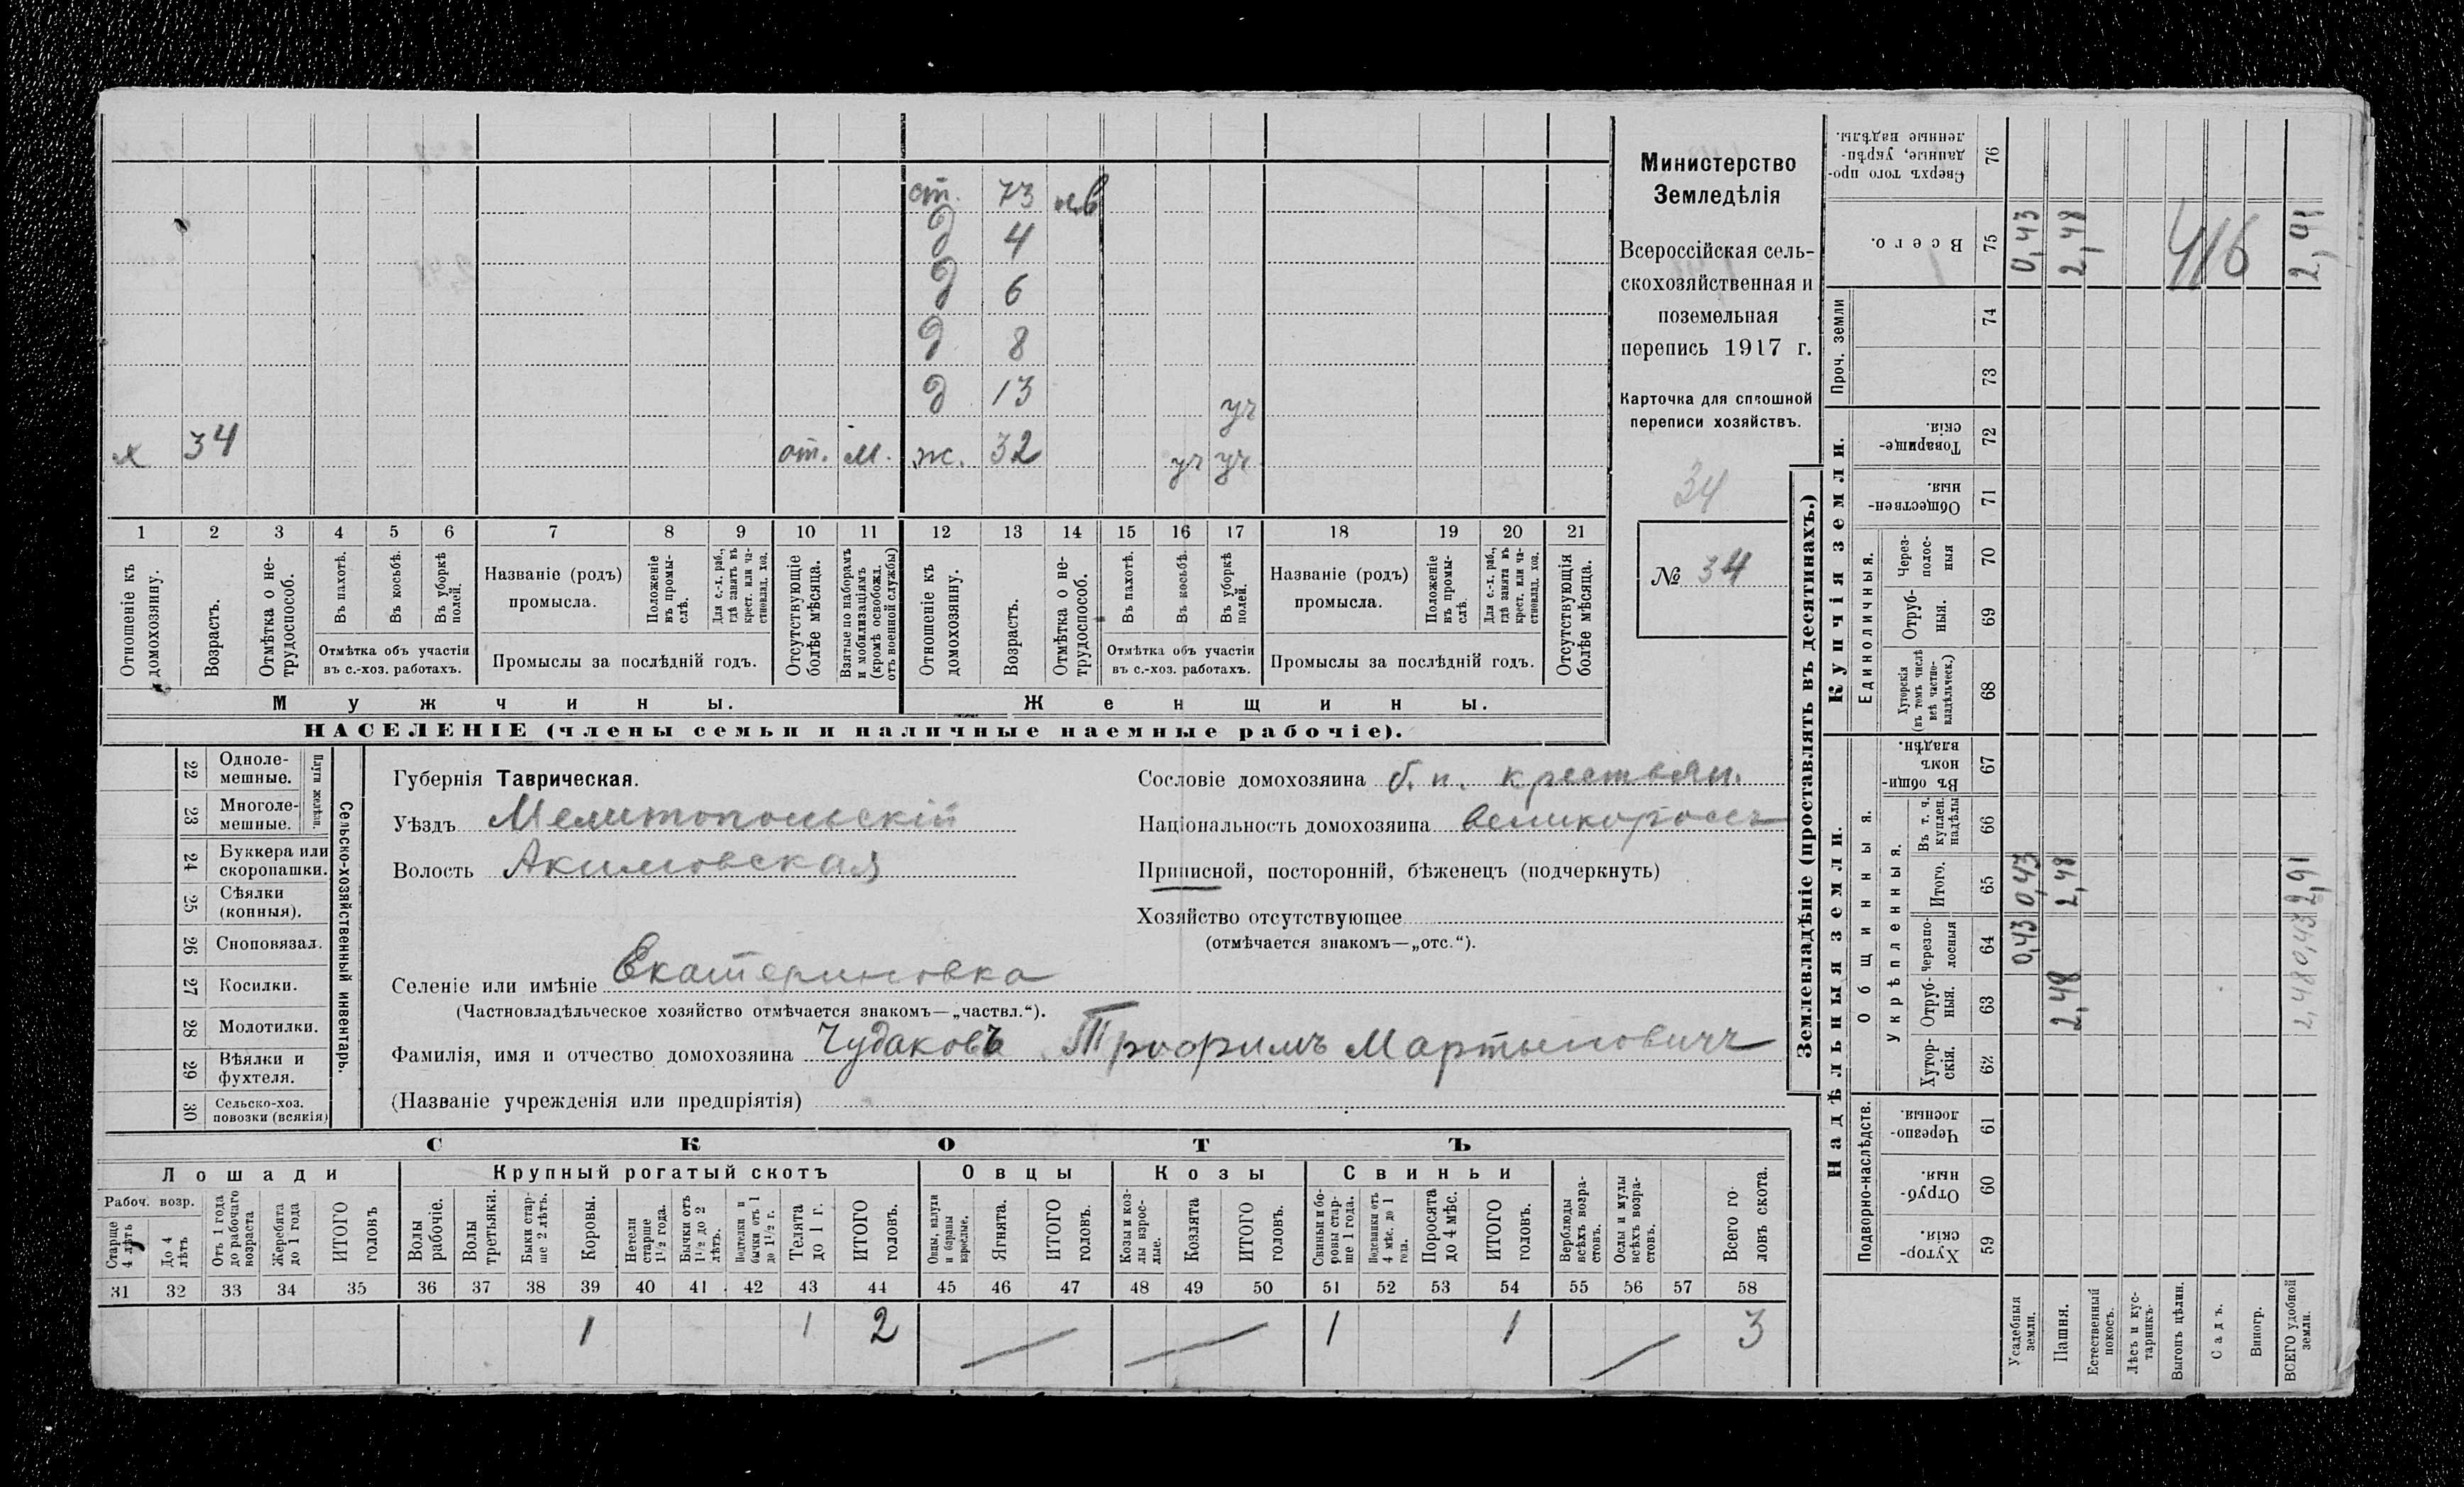 ст. 73 н.в
д 4
д 6
д 8
д 13 уч
х 34 от. м. ж. 32 уч уч
1 2 3 4 5 6 7 8 9 10 11 12 13 14 15 16 17 18 19 20 21
Отношеніе къ домохозяину.
Возрастъ.
Отмѣтка о не-трудоспособ.
Въ пахотѣ.
Въ косьбѣ.
Въ уборкѣ полей.
Отмѣтка объ участіи въ с.-хоз. работахъ.
Названіе (родъ) промысла.
Положеніе въ промы-слѣ.
Для с.-х. раб., гдѣ занятъ въ крест. или ча-стновлад. хоз.
Промыслы за послѣдній годъ.
Отсутствующіе болѣе мѣсяца.
Взятые по наборамъ и мобилизаціямъ (кромѣ освобожд. отъ военной службы)
Отношеніе къ домохозяину.
Возрастъ.
Отмѣтка о не-трудоспособ.
Въ пахотѣ.
Въ косьбѣ.
Въ уборкѣ полей.
Отмѣтка объ участіи въ с.-хоз. работахъ.
Названіе (родъ) промысла.
Положеніе въ промы-слѣ.
Для с.-х. раб., гдѣ занята въ крест. или ча-стновлад. хоз.
Промыслы за послѣдній годъ.
Отсутствующія болѣе мѣсяца.
Мужчины. Женщины.
НАСЕЛЕНІЕ (члены семьи и наличные наемные рабочіе).
Министерство
Земледѣлія
Всероссійская сель-
скохозяйственная и
поземельная
перепись 1917 г.
Карточка для сплошной
переписи хозяйствъ.
34
№ 34
22 Одноле-мешные.
23 Многоле-мешные.
Плуги желѣзн.
24 Буккера или скоропашки.
25 Сѣялки (конныя).
26 Сноповязал.
27 Косилки.
28 Молотилки.
29 Вѣялки и фухтеля.
30 Сельско-хоз. повозки (всякія)
Сельско-хозяйственный инвентарь.
Губернія Таврическая.
Уѣздъ Мелитопольскій
Волость Акимовская
Селеніе или имѣніе Екатериновка
(Частновладѣльческое хозяйство отмѣчается знакомъ—„частвл.“).
Фамилія, имя и отчество домохозяина Чудаковъ Трофимъ Мартыновичъ
(Названіе учрежденія или предпріятія)
Сословіе домохозяина б. п. крестьян.
Національность домохозяина великороссъ
Приписной, посторонній, бѣженецъ (подчеркнуть)
Хозяйство отсутствующее
(отмѣчается знакомъ—„отс.“).
СКОТЪ
Лошади Крупный рогатый скотъ Овцы Козы Свиньи
Рабоч. возр.
Старше 4 лѣтъ
До 4 лѣтъ
Отъ 1 года до рабочаго возраста
Жеребята до 1 года
ИТОГО головъ
Волы рабочіе.
Волы третьяки.
Быки стар-ше 2 лѣтъ.
Коровы.
Нетели старше 1 1/2 года.
Бычки отъ 1 1/2 до 2 лѣтъ.
Подтелки и бычки отъ 1 до 1 1/2 г.
Телята до 1 г.
ИТОГО головъ.
Овцы, валухи и бараны взрослые.
Ягнята.
ИТОГО головъ.
Козы и коз-лы взрос-лые.
Козлята
ИТОГО головъ.
Свиньи и бо-ровы стар-ше 1 года.
Подсвинки отъ 4 мѣс. до 1 года.
Поросята до 4 мѣс.
ИТОГО головъ.
Верблюды всѣхъ возра-стовъ.
Ослы и мулы всѣхъ возра-стовъ.
Всего го-ловъ скота.
31 32 33 34 35 36 37 38 39 40 41 42 43 44 45 46 47 48 49 50 51 52 53 54 55 56 57 58
1 1 2 1 1 3
Землевладѣніе (проставлять въ десятинахъ.)
Надѣльныя земли.
Купчія земли.
Проч. земли
Подворно-наслѣдств.
Общинныя.
Укрѣпленныя.
Единоличныя.
Хутор-скія. 59
Отруб-ныя. 60
Черезпо-лосныя. 61
Хутор-скія. 62
Отруб-ныя. 63
Черезпо-лосныя 64
Итого. 65
Въ т. ч. куплен. надѣлы 66
Въ общин-номъ владѣн. 67
Хуторскія (въ томъ числѣ всѣ частно-владѣльческ.) 68
Отруб-ныя. 69
Через-полос-ныя 70
Обществен-ныя. 71
Товарище-скія. 72
73
74
Всего. 75
Сверхъ того про-данные, укрѣп-ленные надѣлы. 76
Усадебныя земли. 0,43 0,43 0,43
Пашня. 2,48 2,48 2,48
Естественный покосъ.
Лѣсъ и кус-тарникъ.
Выгонъ цѣлин.
Садъ.
Виногр.
416
ВСЕГО удобной земли. 2,48 0,43 2,91 2,91